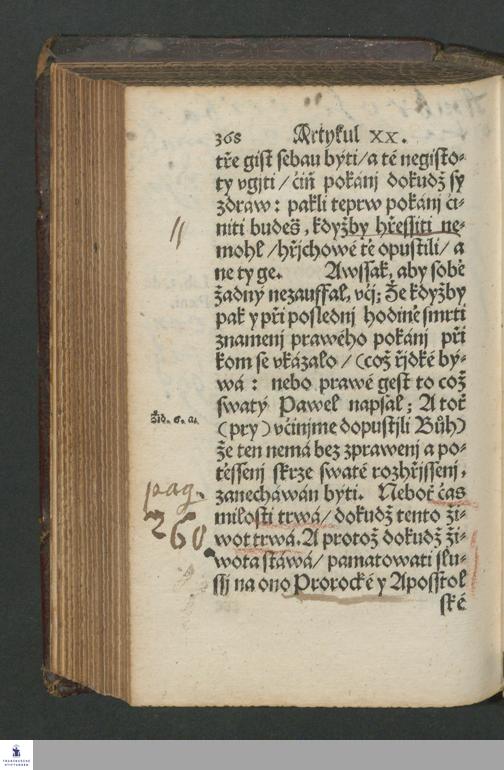 368 Artykul XX.
tře gist sebau býti / a té negisto-
ty vgjti / čiň pokánj dokudž sy
zdraw: pakli teprw pokánj či-
niti budeš, kdyžby hřessiti ne-
mohl / hřjchowé tě opustili / a
ne ty ge. Awssak, aby sobě
žádný nezauffal, včj; Že kdyžby
pak y při poslednj hodině smrti
znamenj prawého pokánj při
kom se vkázalo / (což řjdké bý-
wá: nebo prawé gest to což
swatý Pawel napsal; A toť
(prý) včinjme dopustjli Bůh)
že ten nemá bez zprawenj a po-
těssenj skrze swaté rozhřjssenj,
zanecháwán býti. Neboť čas
milosti trwá / dokudž tento ži-
wot trwá. A protož dokudž ži-
wota stáwá / pamatowati slu-
ssj na ono Prorocké y Aposstol
ské
Žid. 6. a.
pag.
260